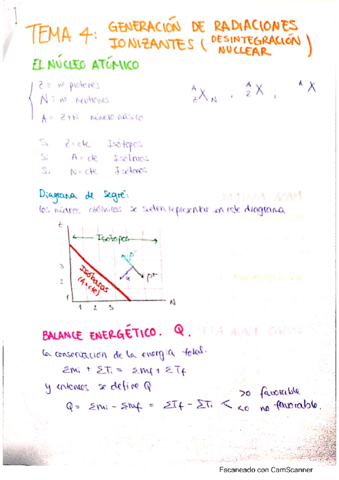 TEMA 4: GENERACIÓN DE RADIACIONES
IONIZANTES (DESINTEGRACIÓN NUCLEAR)
EL NÚCLEO ATÓMICO
Z = nº protones
N = nº neutrones
A = Z+N número másico
A X Z N , A X Z , A X
Si Z=cte Isótopos
Si A=cte Isóbaros
Si N=cte Isótonos
Diagrama de Segré:
los núcleos atómicos se suelen representar en este diagrama
Z
Isótopos
Isóbaros
(A=cte)
β-
α
β+
3
2
1
1 2 3
N
BALANCE ENERGÉTICO. Q.
la conservación de la energía total.
Σmi + ΣTi = Σmf + ΣTf
y entonces se define Q
Q = Σmi - Σmf = ΣTf - ΣTi < >0 favorable
<0 no favorable.
Escaneado con CamScanner